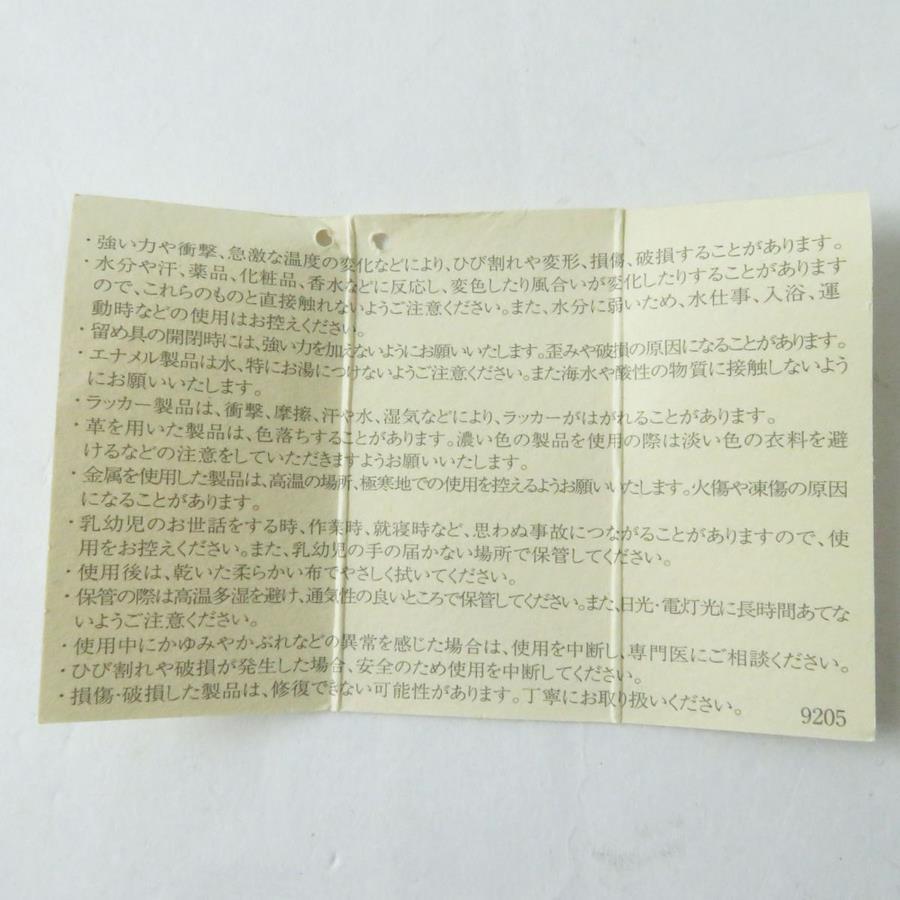 ・強い力や衝撃、急激な温度の変化などにより、ひび割れや変形、損傷、破損することがあります。
・水分や汗、薬品、化粧品、香水などに反応し、変色したり風合いが変化したりすることがあります
ので、これらのものと直接触れないようご注意ください。また、水分に弱いため、水仕事、入浴、運
動時などの使用はお控えください。
・留め具の開閉時には、強い力を加えないようにお願いいたします。歪みや破損の原因になることがあります。
・エナメル製品は水、特にお湯につけないようご注意ください。また海水や酸性の物質に接触しないよう
にお願いいたします。
・ラッカー製品は、衝撃、摩擦、汗や水、湿気などにより、ラッカーがはがれることがあります。
・革を用いた製品は、色落ちすることがあります。濃い色の製品を使用の際は淡い色の衣料を避
けるなどの注意をしていただきますようお願いいたします。
・金属を使用した製品は、高温の場所、極寒地での使用を控えるようお願いいたします。火傷や凍傷の原因
になることがあります。
・乳幼児のお世話をする時、作業時、就寝時など、思わぬ事故につながることがありますので、使
用をお控えください。また、乳幼児の手の届かない場所で保管してください。
・使用後は、乾いた柔らかい布でやさしく拭いてください。
・保管の際は高温多湿を避け、通気性の良いところで保管してください。また、日光・電灯光に長時間あてな
いようご注意ください。
・使用中にかゆみやかぶれなどの異常を感じた場合は、使用を中断し、専門医にご相談ください。
・ひび割れや破損が発生した場合、安全のため使用を中断してください。
・損傷・破損した製品は、修復できない可能性があります。丁寧にお取り扱いください。
9205